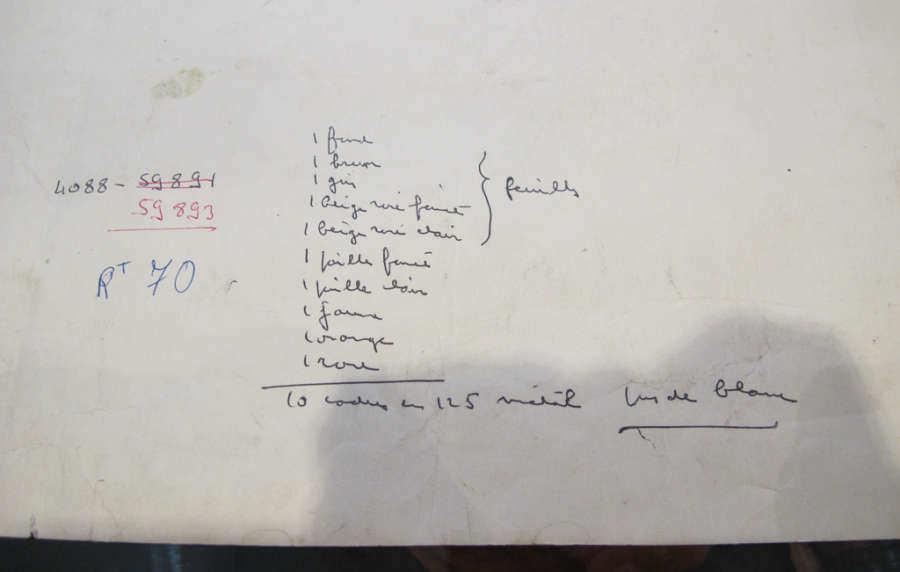 4088 - 59891
59893
RT 70
1 fond
1 brun
1 gris
1 beige rosé foncé
1 beige rosé clair
feuilles
1 paille foncé
1 paille clair
1 jaune
1 orange
1 rose
10 cadres en 125 métal pas de blanc